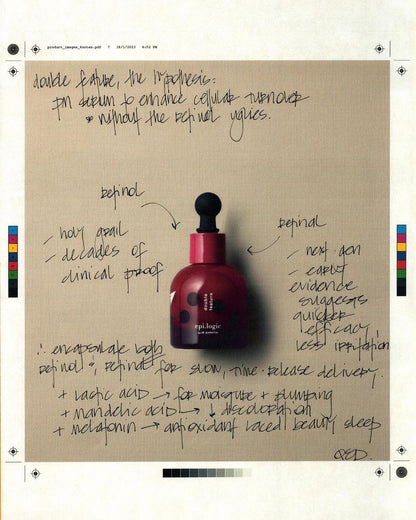 product_images_boxten.pdf 7 18/1/2023 6:52 PM
double feature, the hypothesis:
PM serum to enhance cellular turnover
* without the retinol uglies.
retinol
retinal
- holy grail
- decades of
clinical proof
- next-gen
- early
evidence
suggests
quicker
efficacy,
less irritation
double
feature
epi.logic
∴ encapsulate both
retinol & retinal for slow, time-release delivery.
+ lactic acid → for moisture + plumping
+ mandelic acid → ↓ discoloration
+ melatonin → antioxidant laced beauty sleep
QED.